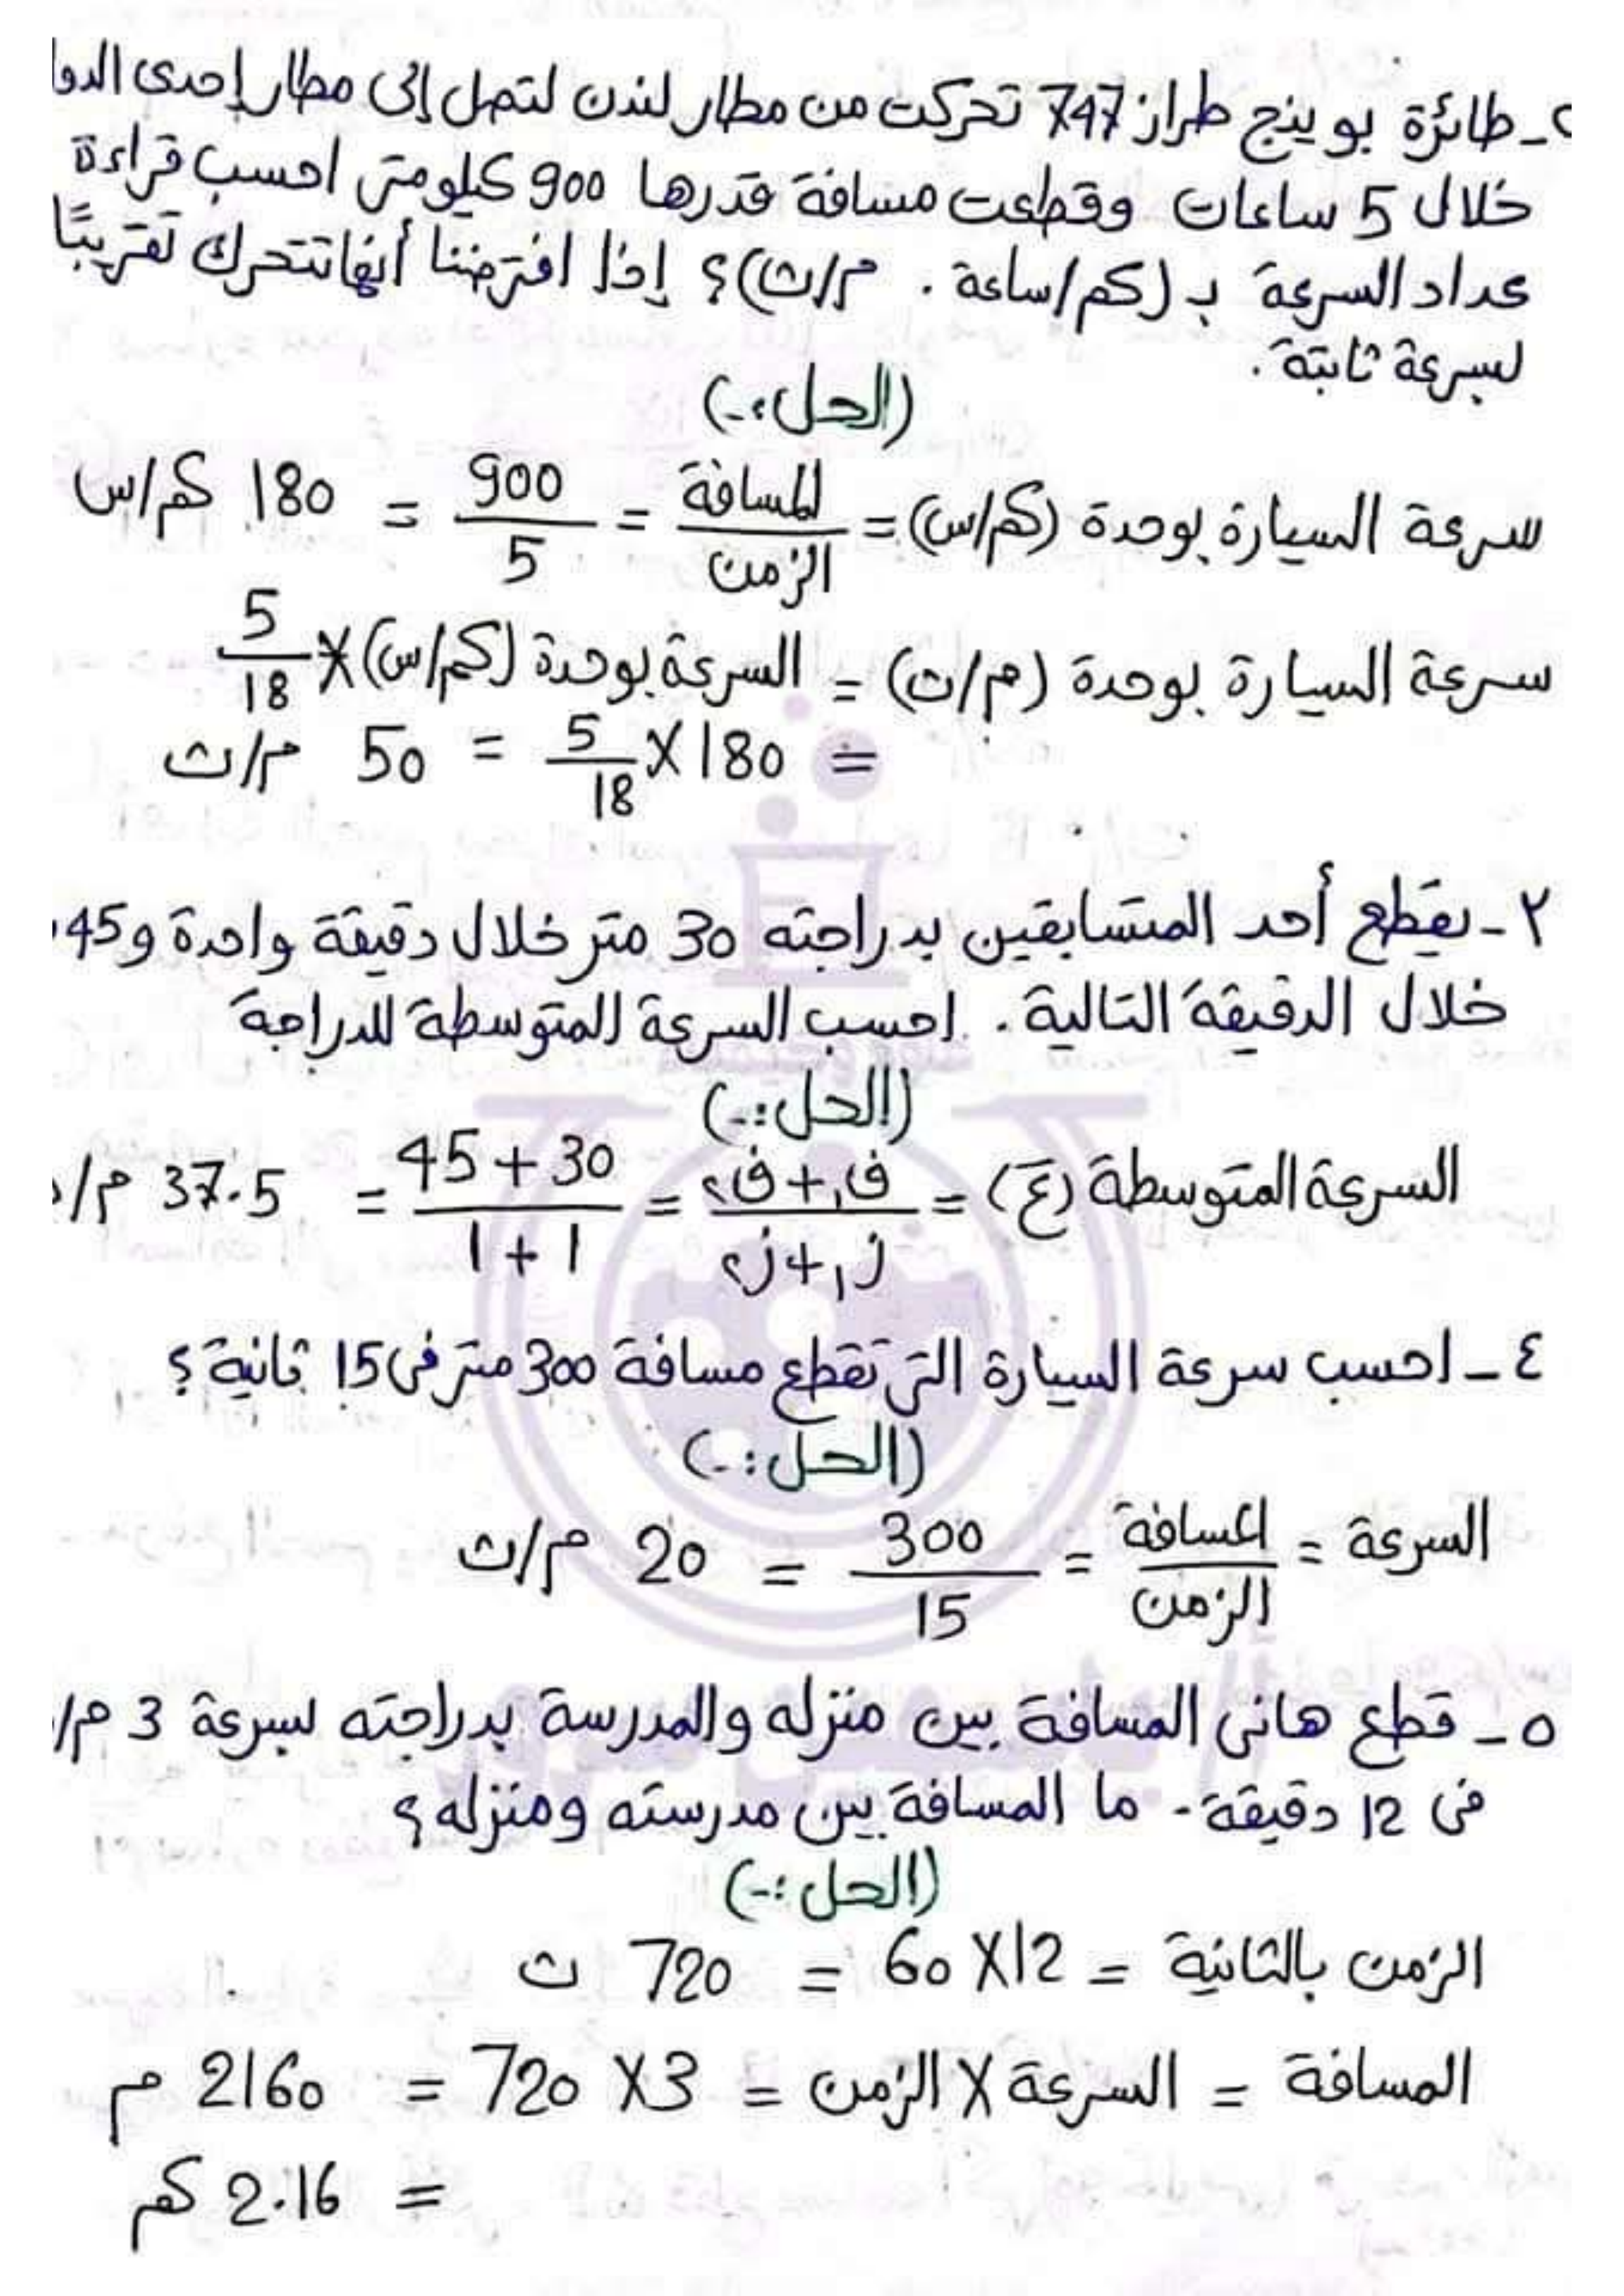 ٢- طائرة بوينج طراز 747 تحركت من مطار لندن لتصل إلى مطار إحدى الدوا
خلال 5 ساعات وقطعت مسافة قدرها 900 كيلومتر احسب قراءة
عداد السرعة بـ (كم/ساعة . م/ث)؟ إذا افترضنا أنها تتحرك تقريبًا
بسرعة ثابتة.
(الحل:-)
سرعة السيارة بوحدة (كم/س) = المسافة / الزمن = 900 / 5 = 180 كم/س
سرعة السيارة بوحدة (م/ث) = السرعة بوحدة (كم/س) × 5 / 18
= 180 × 5 / 18 = 50 م/ث
٢- يقطع أحد المتسابقين بدراجته 30 متر خلال دقيقة واحدة و 45
خلال الدقيقة التالية. احسب السرعة المتوسطة للدراجة
(الحل:-)
السرعة المتوسطة (ع) = ف١ + ف٢ / ز١ + ز٢ = 30 + 45 / 1 + 1 = 37.5 م/د
٤- احسب سرعة السيارة التى تقطع مسافة 300 متر فى 15 ثانية؟
(الحل:-)
السرعة = المسافة / الزمن = 300 / 15 = 20 م/ث
٥- قطع هانى المسافة بين منزله والمدرسة بدراجته بسرعة 3 م/
فى 12 دقيقة - ما المسافة بين مدرسته ومنزله؟
(الحل:-)
الزمن بالثانية = 12 × 60 = 720 ث
المسافة = السرعة × الزمن = 3 × 720 = 2160 م
= 2.16 كم